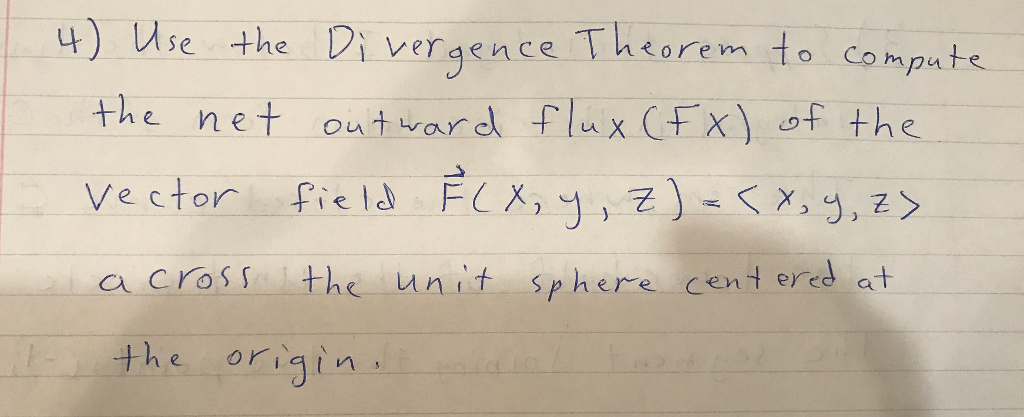 4) Use the Divergence Theorem to compute
the net outward flux (FX) of the
vector field F⃗(x, y, z) = <x, y, z>
across the unit sphere centered at
the origin.